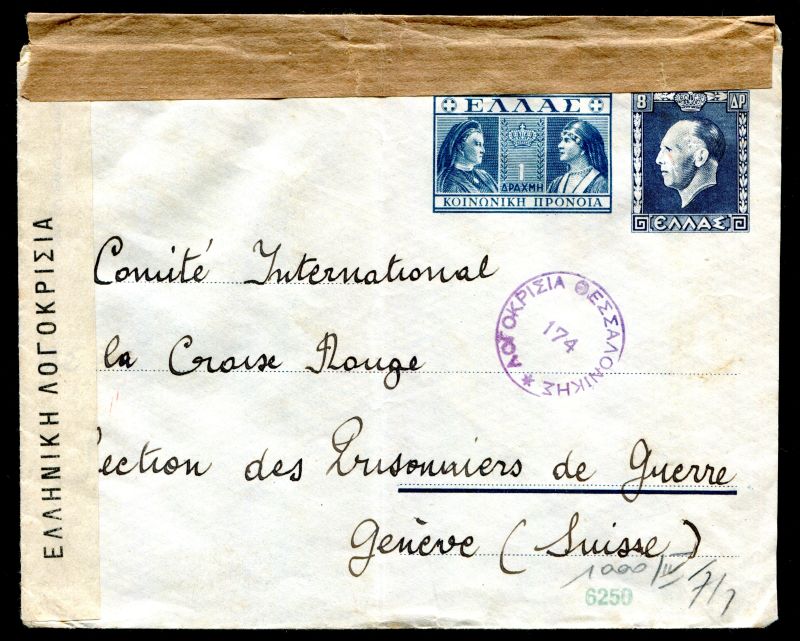 ΕΛΛΑΣ
1
ΔΡΑΧΜΗ
ΚΟΙΝΩΝΙΚΗ ΠΡΟΝΟΙΑ
8 ΔΡ
ΕΛΛΑΣ
ΕΛΛΗΝΙΚΗ ΛΟΓΟΚΡΙΣΙΑ
Comité International
la Croix Rouge
ection des Prisonniers de Guerre
Genève (Suisse)
ΛΟΓΟΚΡΙΣΙΑ ΘΕΣΣΑΛΟΝΙΚΗΣ *
174
1000/IV 7/7
6250